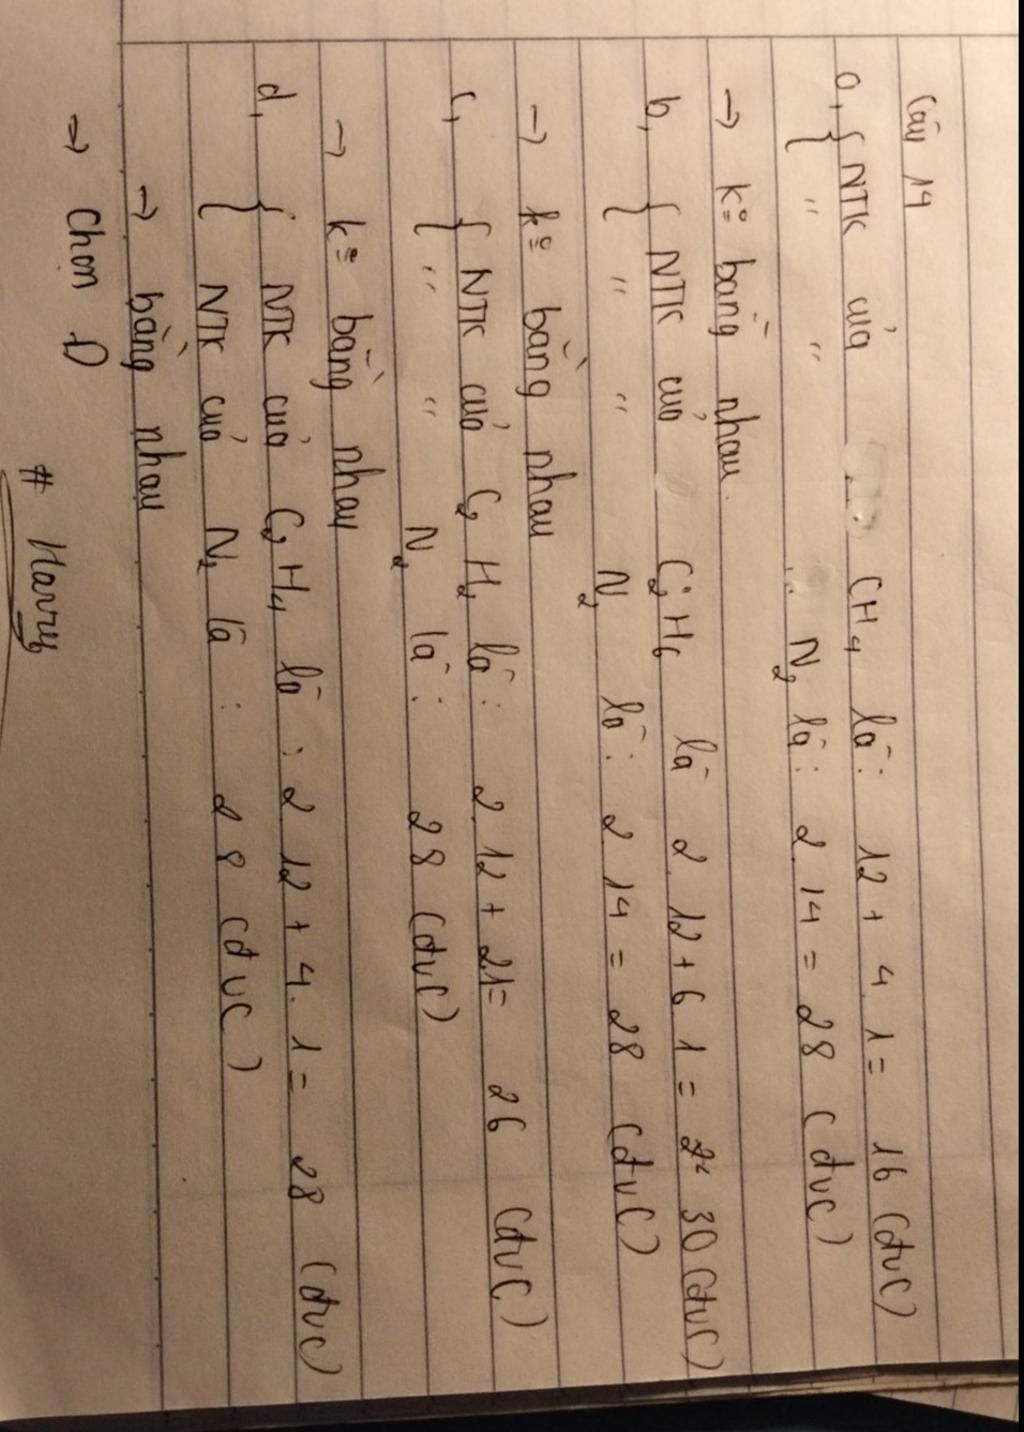 Câu 14
a, { NTK của CH4 là: 12 + 4.1 = 16 (đvC)
" " " N2 là: 2.14 = 28 (đvC)
→ k° bằng nhau.
b, { NTK của C2H6 là 2.12 + 6.1 = 30 (đvC)
" " N2 là: 2.14 = 28 (đvC)
→ k° bằng nhau
c, { NTK của C2H2 là: 2.12 + 2.1 = 26 (đvC)
" " N2 là: 28 (đvC)
→ k° bằng nhau
d, { NTK của C2H4 là: 2.12 + 4.1 = 28 (đvC)
NTK của N2 là: 28 (đvC)
→ bằng nhau
→ Chọn D
# Harry